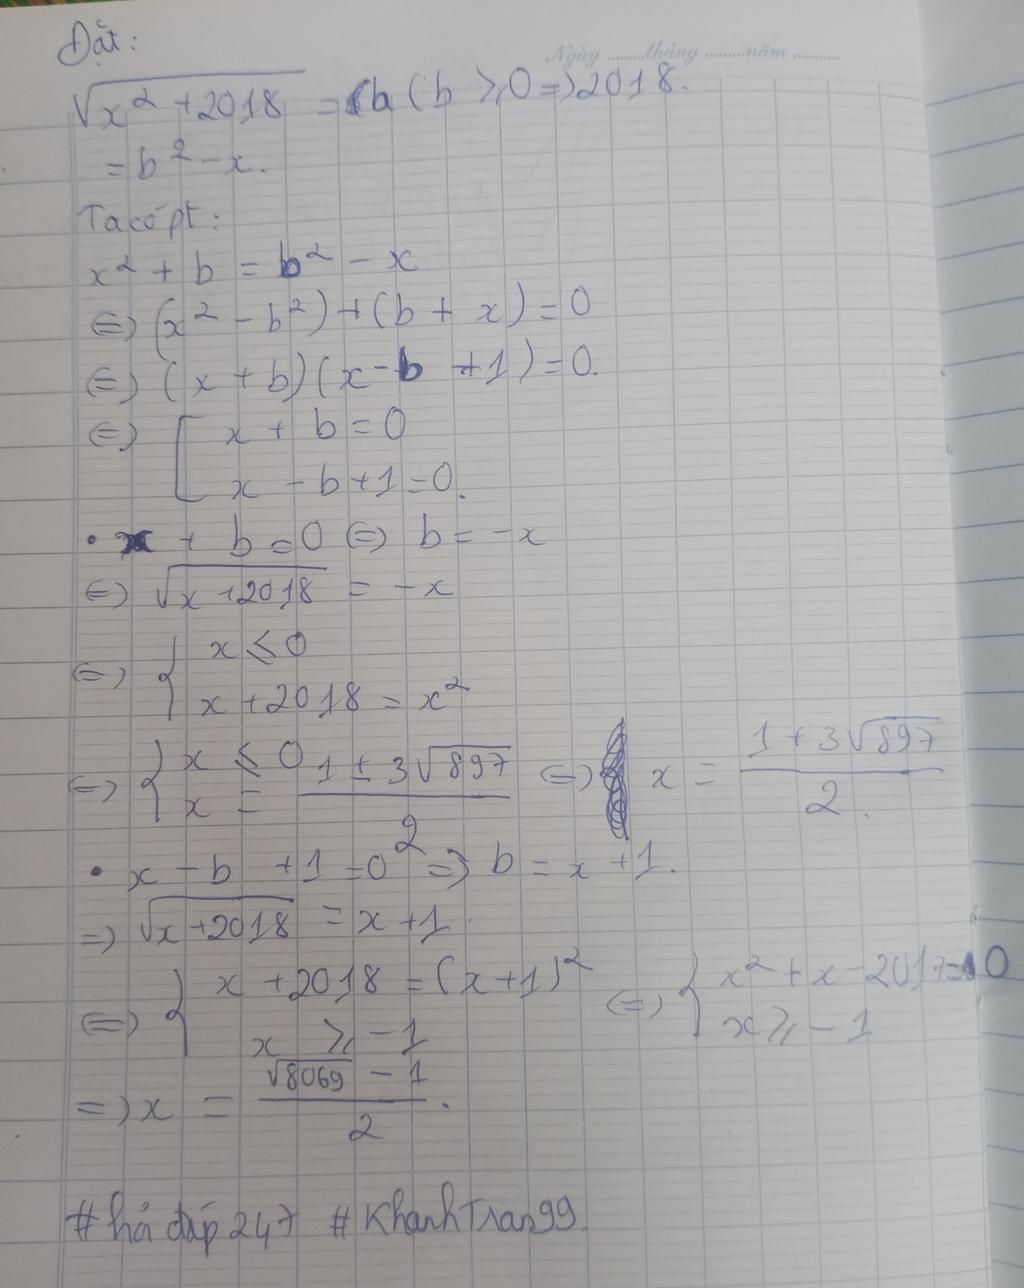 Đặt:
Ngày ........tháng ........năm .........
√(x² + 2018) = b (b ≥ 0 => 2018.
= b² - x.
Ta có pt:
x² + b = b² - x
<=> (x² - b²) + (b + x) = 0
<=> (x + b)(x - b + 1) = 0.
<=> [ x + b = 0
x - b + 1 = 0.
• x + b = 0 <=> b = -x
<=> √(x + 2018) = -x
<=> { x ≤ 0
x + 2018 = x²
<=> { x ≤ 0
x = (1 ± 3√897)/2 <=> x = (1 + 3√897)/2.
• x - b + 1 = 0 => b = x + 1.
=> √(x + 2018) = x + 1
<=> { x + 2018 = (x + 1)² <=> { x² + x - 2017 = 0
x ≥ -1 x ≥ -1
=> x = (√8069 - 1)/2.
#hỏi đáp 247 #KhanhTran99